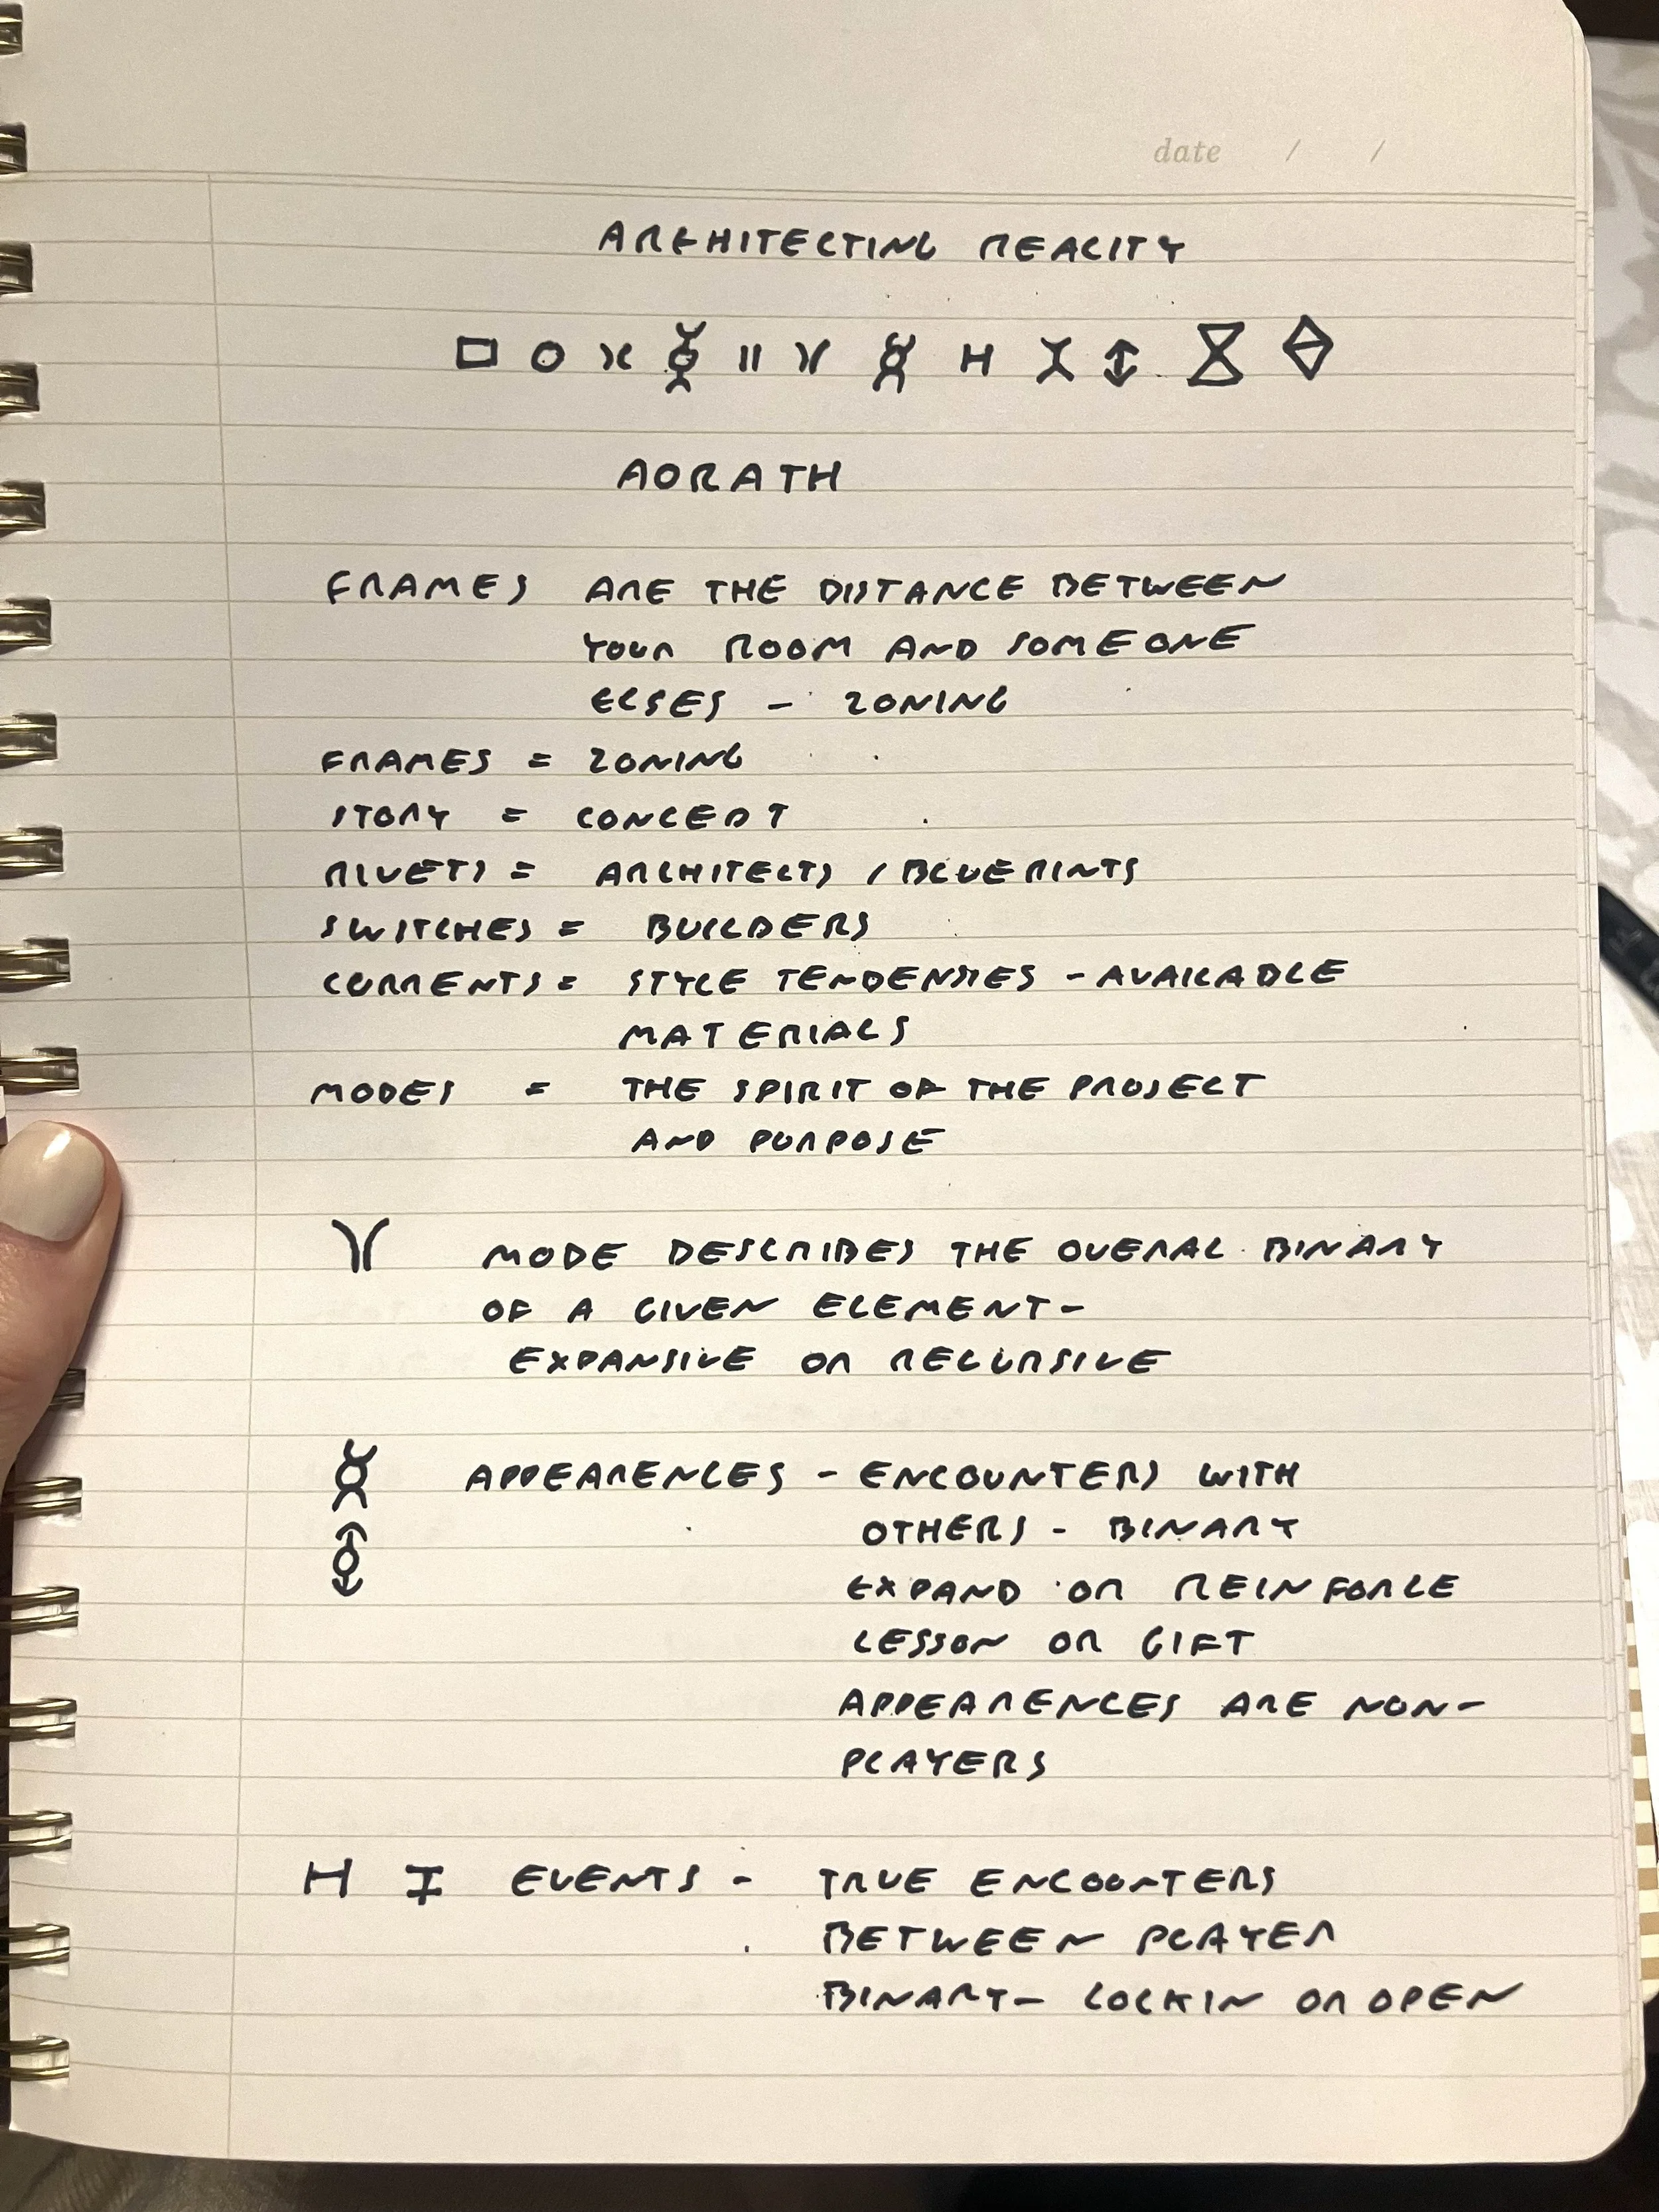 date / /
ARCHITECTING REALITY
AORATH
FRAMES ARE THE DISTANCE BETWEEN
YOUR ROOM AND SOMEONE
ELSES - ZONING
FRAMES = ZONING
STORY = CONCEPT
RIVETS = ARCHITECTS / BLUEPRINTS
SWITCHES = BUILDERS
CURRENTS = STYLE TENDENSIES - AVAILABLE
MATERIALS
MODES = THE SPIRIT OF THE PROJECT
AND PURPOSE
MODE DESCRIBES THE OVERAL BINARY
OF A GIVEN ELEMENT-
EXPANSIVE OR RECURSIVE
APPEARENCES - ENCOUNTERS WITH
OTHERS - BINARY
EXPAND OR REINFORCE
LESSON OR GIFT
APPEARENCES ARE NON-
PLAYERS
H I EVENTS - TRUE ENCOUNTERS
BETWEEN PLAYER
BINARY- LOCKIN OR OPEN